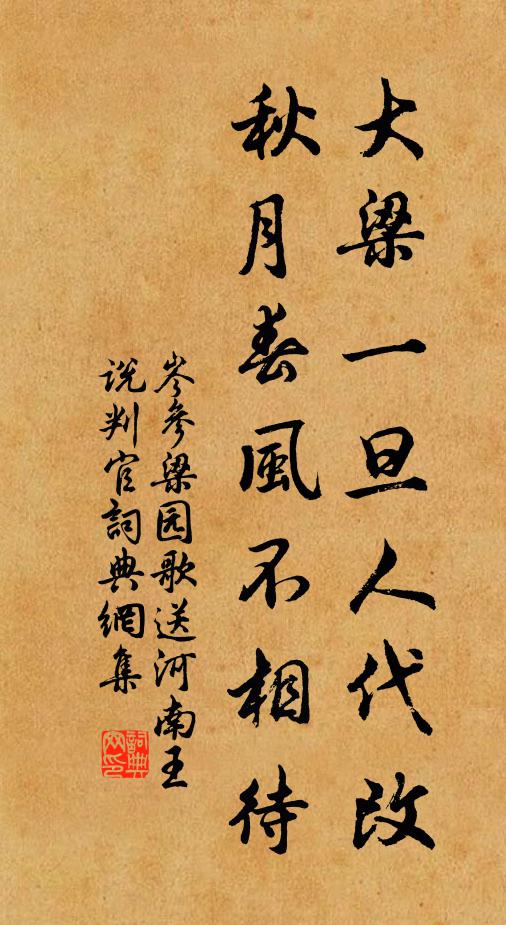 大梁一旦人代改
秋月春風不相待
岑參梁园歌送河南王
説判官詞典網集
詞典
网印